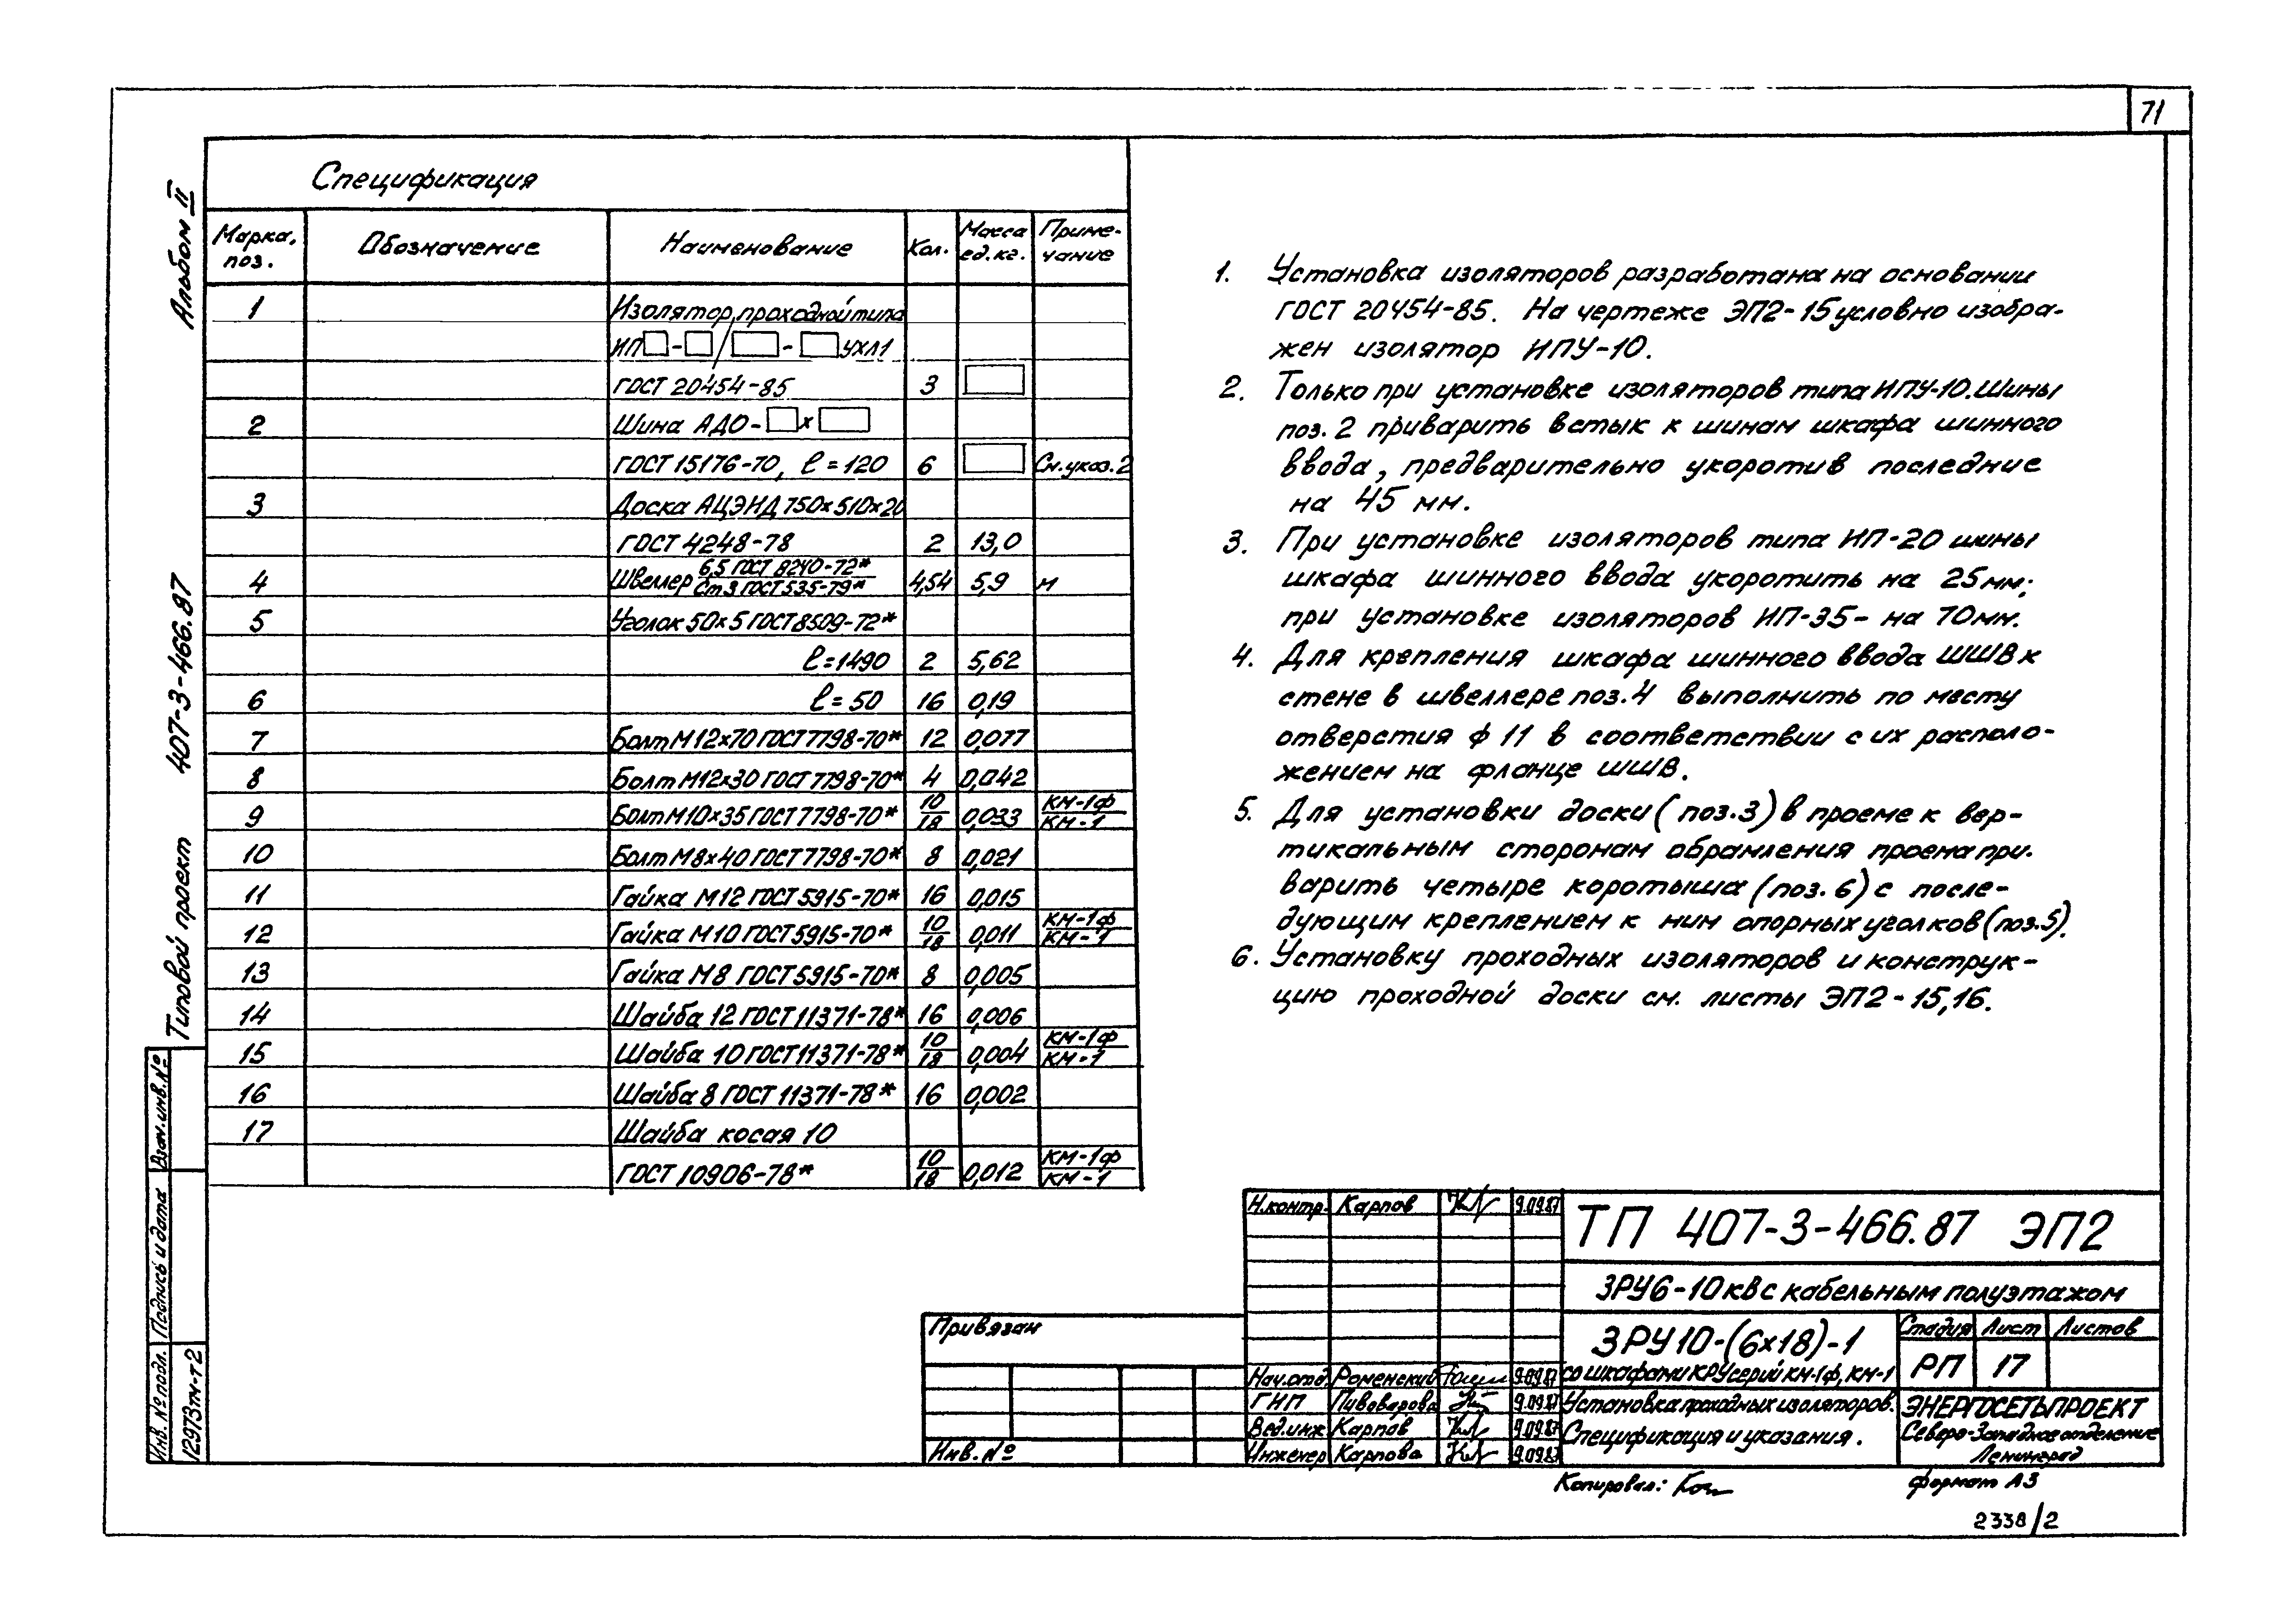 71
Альбом II
407-3-466.87
Типовой проект
Взам.инв.№
Подпись и дата
Инв.№подл.
12973тм-т2
Спецификация
Марка, поз. Обозначение Наименование Кол. Масса ед.кг. Примечание
1 Изолятор проходной типа
ИП□-□/□-□УХЛ1
ГОСТ 20454-85 3 □
2 Шина АДО-□х□
ГОСТ 15176-70, ℓ=120 6 □ См.указ.2
3 Доска АЦЭИД 750х510х20
ГОСТ 4248-78 2 13,0
4 Швеллер 6,5 ГОСТ 8240-72* / Ст3 ГОСТ 535-79* 4,54 5,9 м
5 Уголок 50х5 ГОСТ 8509-72*
ℓ=1490 2 5,62
6 ℓ=50 16 0,19
7 Болт М12х70 ГОСТ 7798-70* 12 0,077
8 Болт М12х30 ГОСТ 7798-70* 4 0,042
9 Болт М10х35 ГОСТ 7798-70* 10/18 0,033 КМ-1ф/КМ-1
10 Болт М8х40 ГОСТ 7798-70* 8 0,021
11 Гайка М12 ГОСТ 5915-70* 16 0,015
12 Гайка М10 ГОСТ 5915-70* 10/18 0,011 КМ-1ф/КМ-1
13 Гайка М8 ГОСТ 5915-70* 8 0,005
14 Шайба 12 ГОСТ 11371-78* 16 0,006
15 Шайба 10 ГОСТ 11371-78* 10/18 0,004 КМ-1ф/КМ-1
16 Шайба 8 ГОСТ 11371-78* 16 0,002
17 Шайба косая 10
ГОСТ 10906-78* 10/18 0,012 КМ-1ф/КМ-1
1. Установка изоляторов разработана на основании
ГОСТ 20454-85. На чертеже ЭП2-15 условно изобра-
жен изолятор ИПУ-10.
2. Только при установке изоляторов типа ИПУ-10. Шины
поз.2 приварить встык к шинам шкафа шинного
ввода, предварительно укоротив последние
на 45 мм.
3. При установке изоляторов типа ИП-20 шины
шкафа шинного ввода укоротить на 25мм;
при установке изоляторов ИП-35- на 70мм.
4. Для крепления шкафа шинного ввода ШШВ к
стене в швеллере поз.4 выполнить по месту
отверстия ф 11 в соответствии с их располо-
жением на фланце ШШВ.
5. Для установки доски (поз.3) в проеме к вер-
тикальным сторонам обрамления проема при-
варить четыре коротыша (поз.6) с после-
дующим креплением к ним опорных уголков (поз.5).
6. Установку проходных изоляторов и конструк-
цию проходной доски см. листы ЭП2-15,16.
Н.контр. Карпов 9.09.87
ТП 407-3-466.87 ЭП2
ЗРУ6-10кВ с кабельным полуэтажом
Привязан
Инв.№
ЗРУ10-(6х18)-1
со шкафами КРУ серий КМ-1ф, КМ-1
Стадия Лист Листов
РП 17
Нач.отд. Роменский 9.09.87
ГИП Пивоварова 9.09.87
Вед.инж Карпов 9.09.87
Инженер Карпова 9.09.87
Установка проходных изоляторов.
Спецификация и указания.
ЭНЕРГОСЕТЬПРОЕКТ
Северо-Западное отделение
Ленинград
Копировал:
формат А3
2338/2